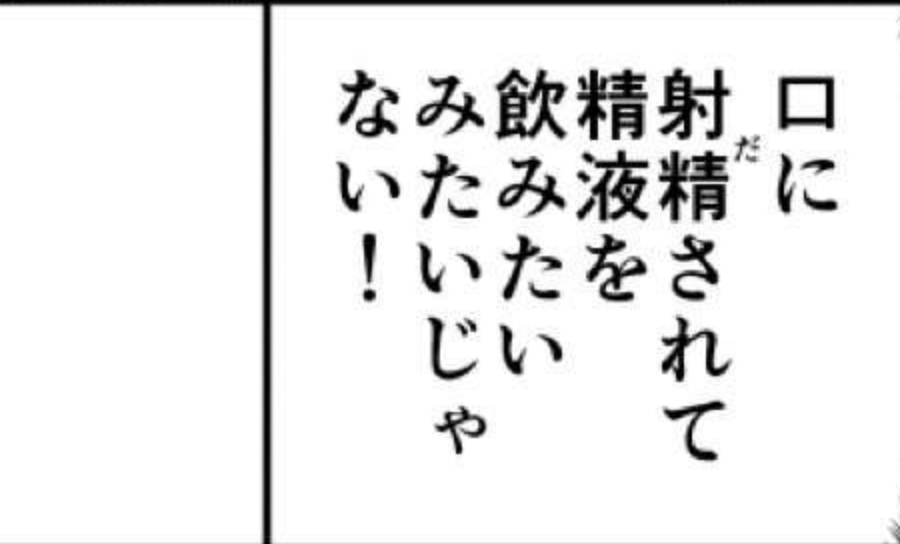 口に
射精されて
だ
精液を
飲みたい
みたいじゃ
ない！